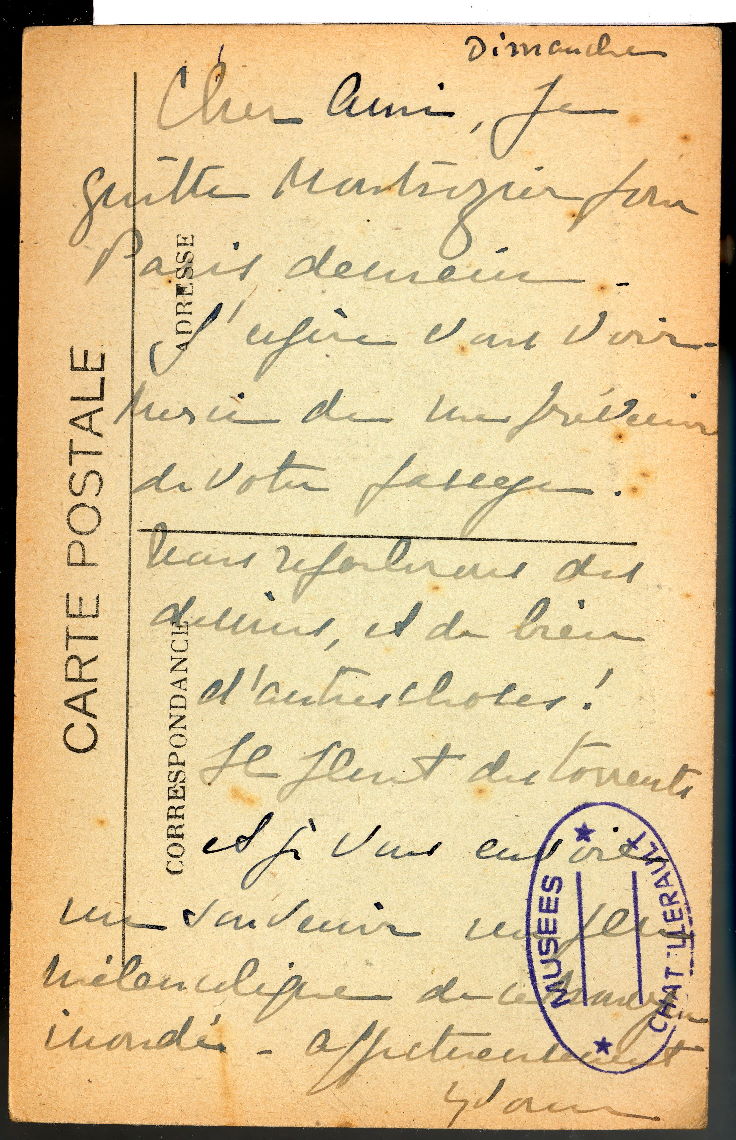 Dimanche
Cher Ami, Je
quitte Montrozier pour
Paris demain.
J'espère vous voir.
Merci de me prévenir
de votre passage.
Nous reparlerons des
dessins, et de bien
d'autres choses!
Il pleut des torrents
et je vous envoie
un souvenir un peu
mélancolique de ce
inondé - affectueusement
CARTE POSTALE
ADRESSE
CORRESPONDANCE
MUSEES
CHATELLERAULT